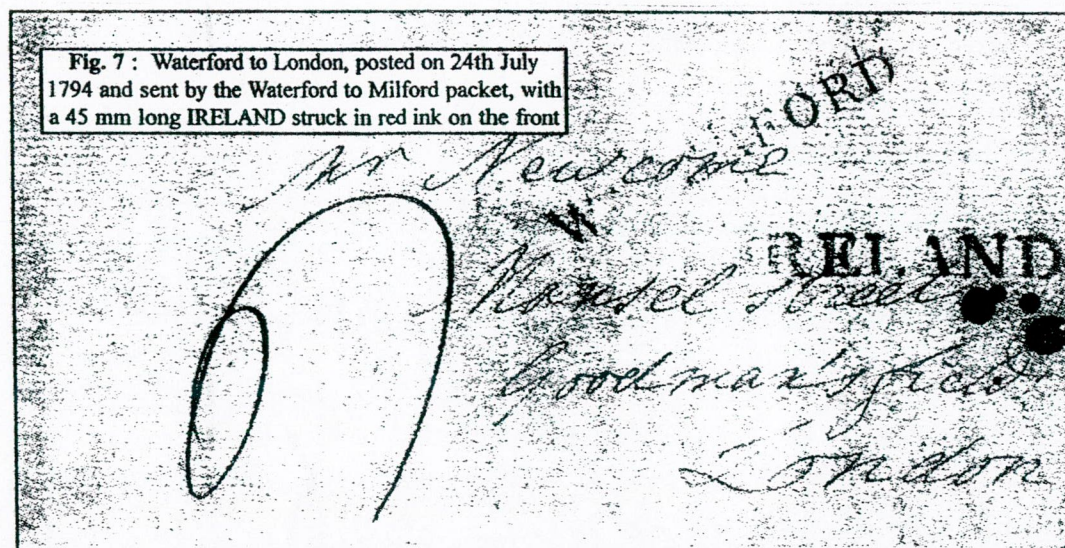 Fig. 7 : Waterford to London, posted on 24th July
1794 and sent by the Waterford to Milford packet, with
a 45 mm long IRELAND struck in red ink on the front
W FORD
Mr Newcome
IRELAND
Mansel Street
Goodman's field
London